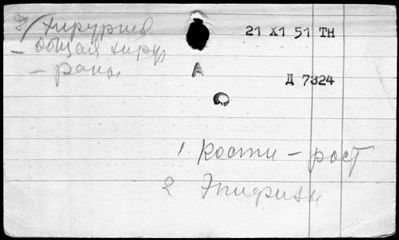 8) хирургия
21 XI 51 ТН
– общая хирур
– раны
А
Д 7324
1 Кости – рост
2 Эпифизы